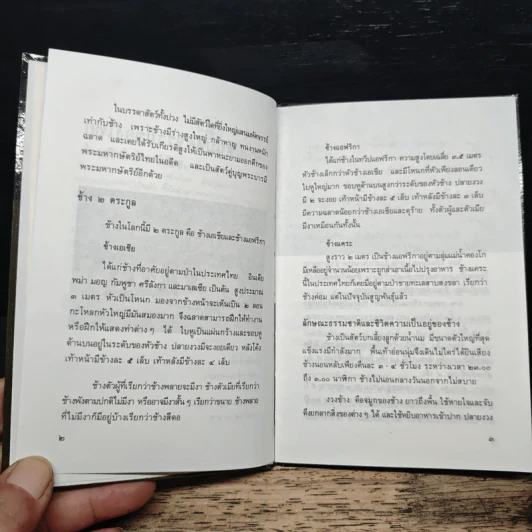 ในบรรดาสัตว์ทั้งปวง ไม่มีสัตว์ใดที่ยิ่งใหญ่แสนมหัศจรรย์
เท่ากับช้าง เพราะช้างมีร่างสูงใหญ่ กล้าหาญ ทนงานหนัก
ฉลาด และเคยได้รับเกียรติสูงให้เป็นพาหนะยามออกศึกของ
พระมหากษัตริย์ไทยในอดีต และเป็นสัตว์คู่บุญพระบารมี
พระมหากษัตริย์อีกด้วย
ช้าง ๒ ตระกูล
ช้างในโลกนี้มี ๒ ตระกูล คือ ช้างเอเชียและช้างแอฟริกา
ช้างเอเชีย
ได้แก่ช้างที่อาศัยอยู่ตามป่าในประเทศไทย อินเดีย
พม่า มอญ กัมพูชา ศรีลังกา และมาเลเซีย เป็นต้น สูงประมาณ
๓ เมตร หัวเป็นโหนก มองจากข้างหน้าจะเห็นเป็น ๒ ลอน
กะโหลกหัวใหญ่มีมันสมองมาก จึงฉลาดสามารถฝึกให้ทำงาน
หรือฝึกให้แสดงท่าต่าง ๆ ได้ ใบหูเป็นแผ่นกว้างและขอบหู
ด้านบนอยู่ในระดับของหัวช้าง ปลายงวงมีจะงอยเดียว หลังโค้ง
เท้าหน้ามีข้างละ ๕ เล็บ เท้าหลังมีข้างละ ๔ เล็บ
ช้างตัวผู้ที่เรียกว่าช้างพลายจะมีงา ช้างตัวเมียที่เรียกว่า
ช้างพังตามปกติไม่มีงา หรืออาจมีงาสั้น ๆ เรียกว่าขนาย ช้างพลาย
ที่ไม่มีงาก็มีอยู่บ้างเรียกว่าช้างสีดอ
๒
ช้างแอฟริกา
ได้แก่ช้างในทวีปแอฟริกา ความสูงโดยเฉลี่ย ๓.๕ เมตร
หัวช้างเล็กกว่าหัวช้างเอเชีย และมีโหนกที่หัวเพียงลอนเดียว
ใบหูใหญ่มาก ขอบหูด้านบนสูงกว่าระดับของหัวช้าง ปลายงวง
มี ๒ จะงอย เท้าหน้ามีข้างละ ๔ เล็บ เท้าหลังมีข้างละ ๓ เล็บ
มีความฉลาดน้อยกว่าช้างเอเชียและดุร้าย ทั้งตัวผู้และตัวเมีย
มีงาเหมือนกันทั้งนั้น
ช้างแคระ
สูงราว ๒ เมตร เป็นช้างแอฟริกาอยู่ตามลุ่มแม่น้ำคองโก
มีเหลืออยู่จำนวนน้อยเพราะถูกล่าเอาเนื้อไปปรุงอาหาร ช้างแคระ
นี้ในประเทศไทยก็เคยมีอยู่ตามป่าชายทะเลสาบสงขลา เรียกว่า
ช้างค่อม แต่ในปัจจุบันสูญพันธุ์แล้ว
ลักษณะธรรมชาติและชีวิตความเป็นอยู่ของช้าง
ช้างเป็นสัตว์บกเลี้ยงลูกด้วยน้ำนม มีขนาดตัวใหญ่ที่สุด
แข็งแรงมีกำลังมาก พื้นเท้าอ่อนนุ่มจึงเดินไม่ใคร่ได้ยินเสียง
ช้างนอนหลับเพียงคืนละ ๓ - ๔ ชั่วโมง ระหว่างเวลา ๒๓.๐๐
ถึง ๓.๐๐ นาฬิกา ช้างไม่นอนกลางวันนอกจากไม่สบาย
งวงช้าง คือจมูกของช้าง ยาวถึงพื้น ใช้หายใจและจับ
ดึงยกลากสิ่งของต่าง ๆ ได้ และใช้หยิบอาหารเข้าปาก ปลายงวง
๓